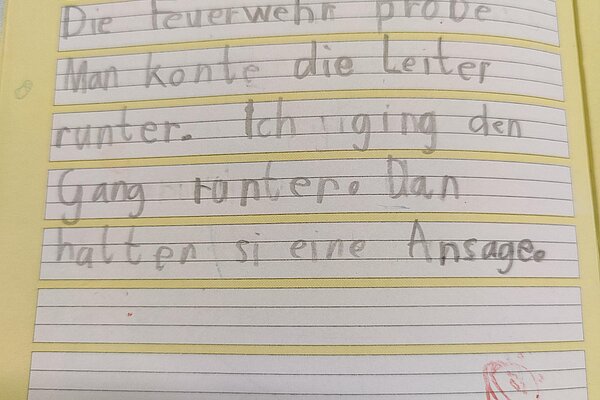 Die feuerwehr probe
Man konte die Leiter
runter. Ich ging den
Gang runter. Dan
halten si eine Ansage.